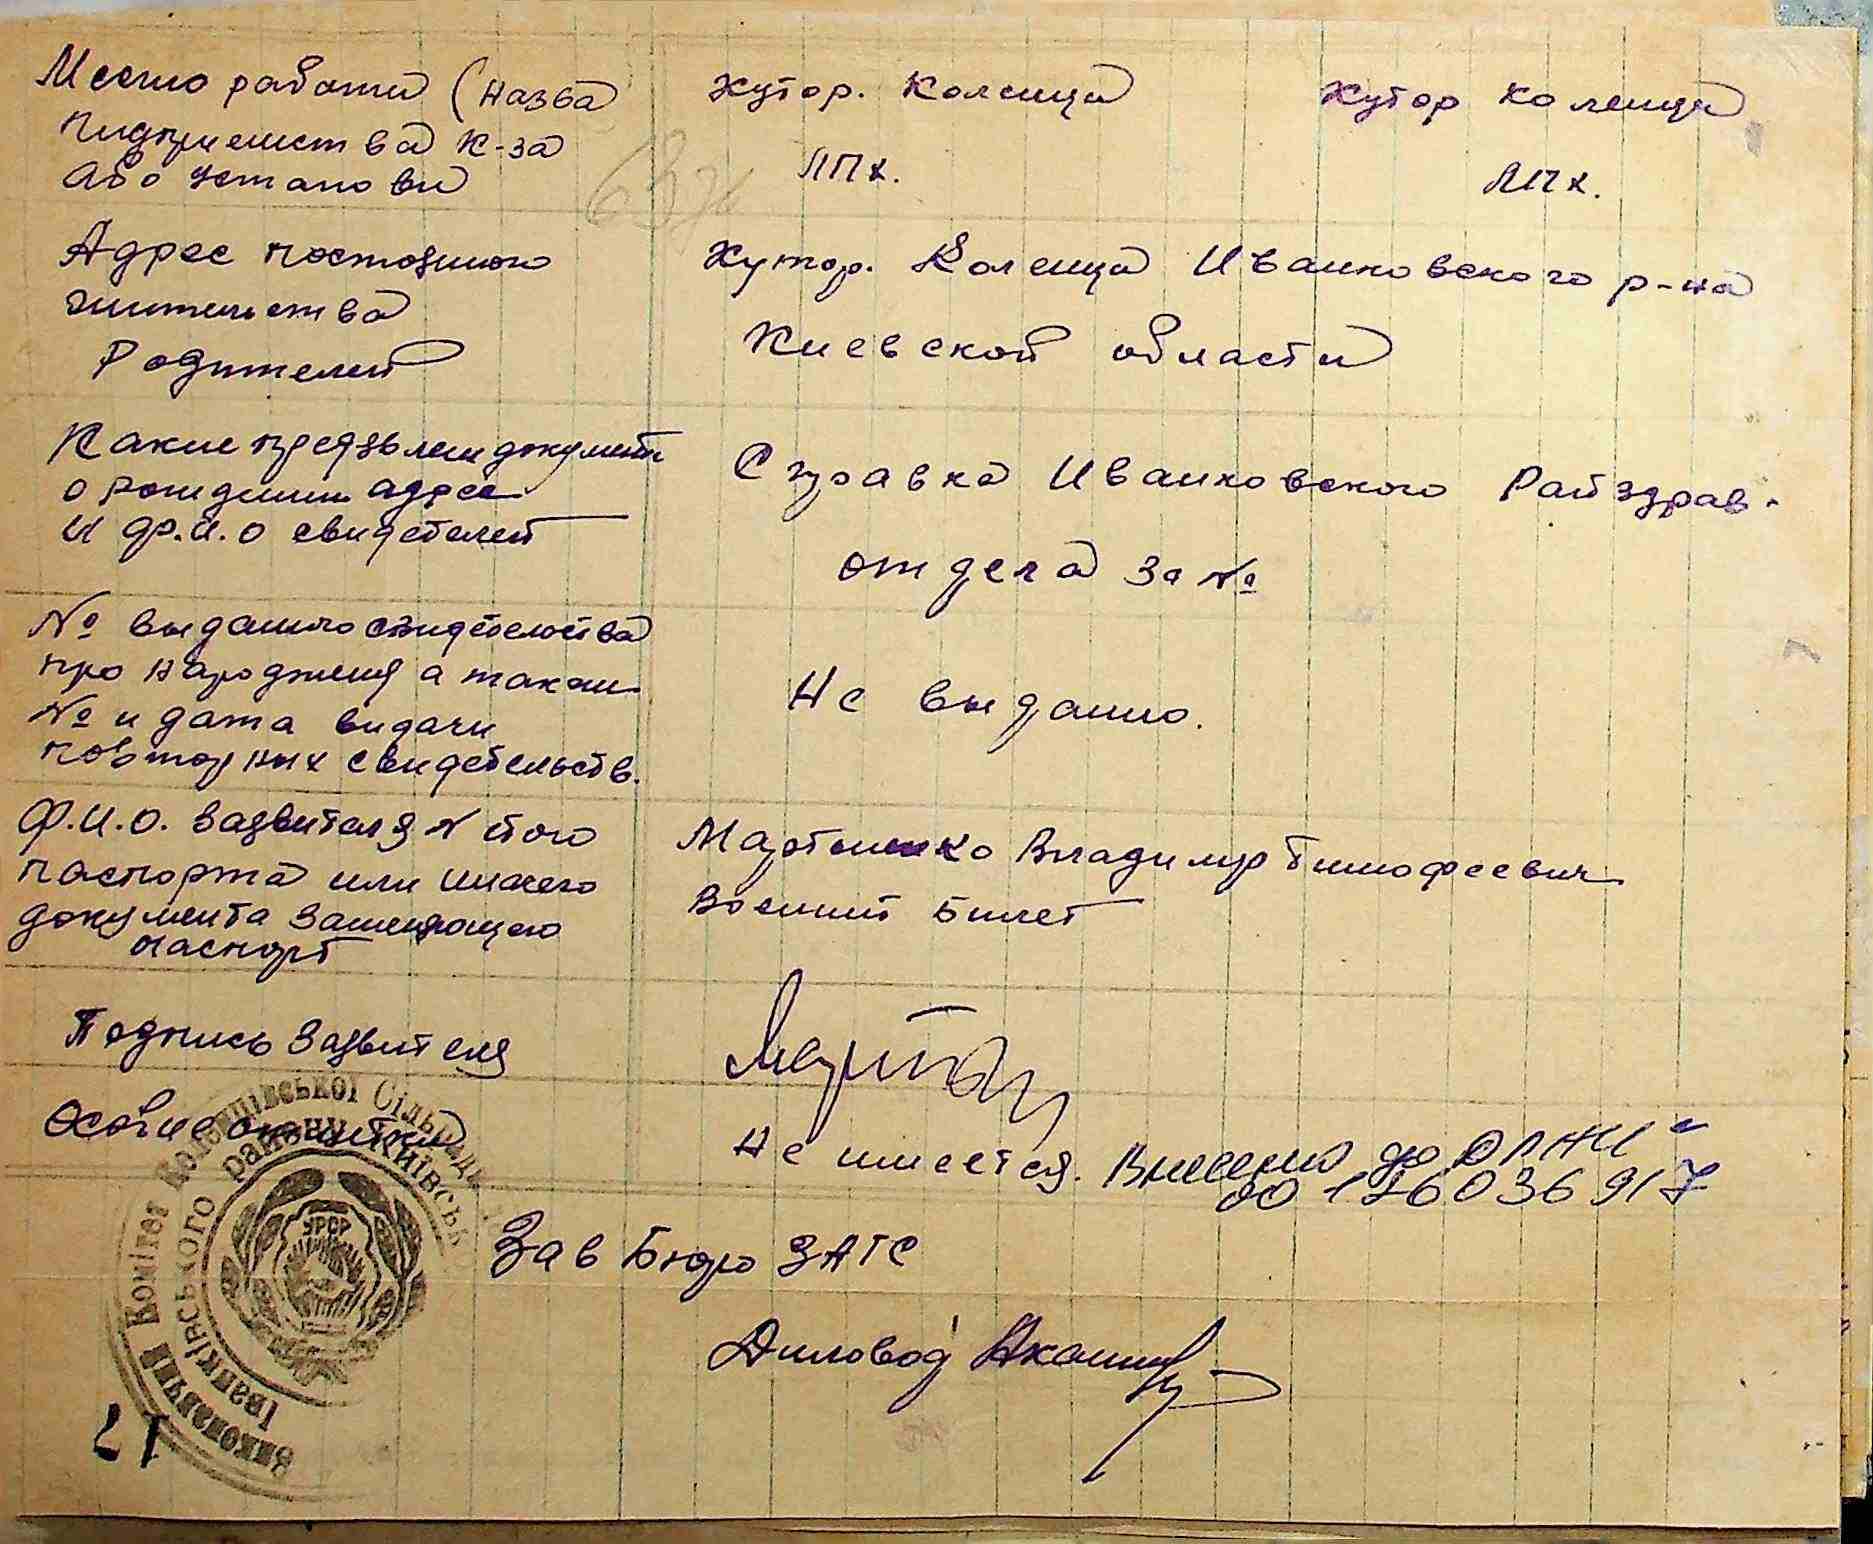 Место работи (назва
підприемства к-за
або установи
хутор. Коленци
хутор коленци
ЛПХ.
ЛПХ.
Адрес постоянного
жительства
Родителей
Хутор. Коленци Иванковского р-на
Киевской области
Какие предъявлен документы
о рождении адрес
и ф.и.о свидетелей
Справка Иванковского Райздрав-
отдела за №
№ выданого свидетельства
про народження а также
№ и дата видачи
повторных свидетельств.
Не выдано.
Ф.И.О. Заявителя № його
паспорта или иного
документа заменяющего
паспорт
Мартыненко Владимир Тимофеевич
Военный билет
Подпись Заявителя
Март
Особие отметки
Не имеется. Внесено до ДРАЦС
00126036917
Зав Бюро ЗАГС
Диловод
Виконавчий Комітет Коленцівської Сільради
Іванківського району Київськ
УРСР
21